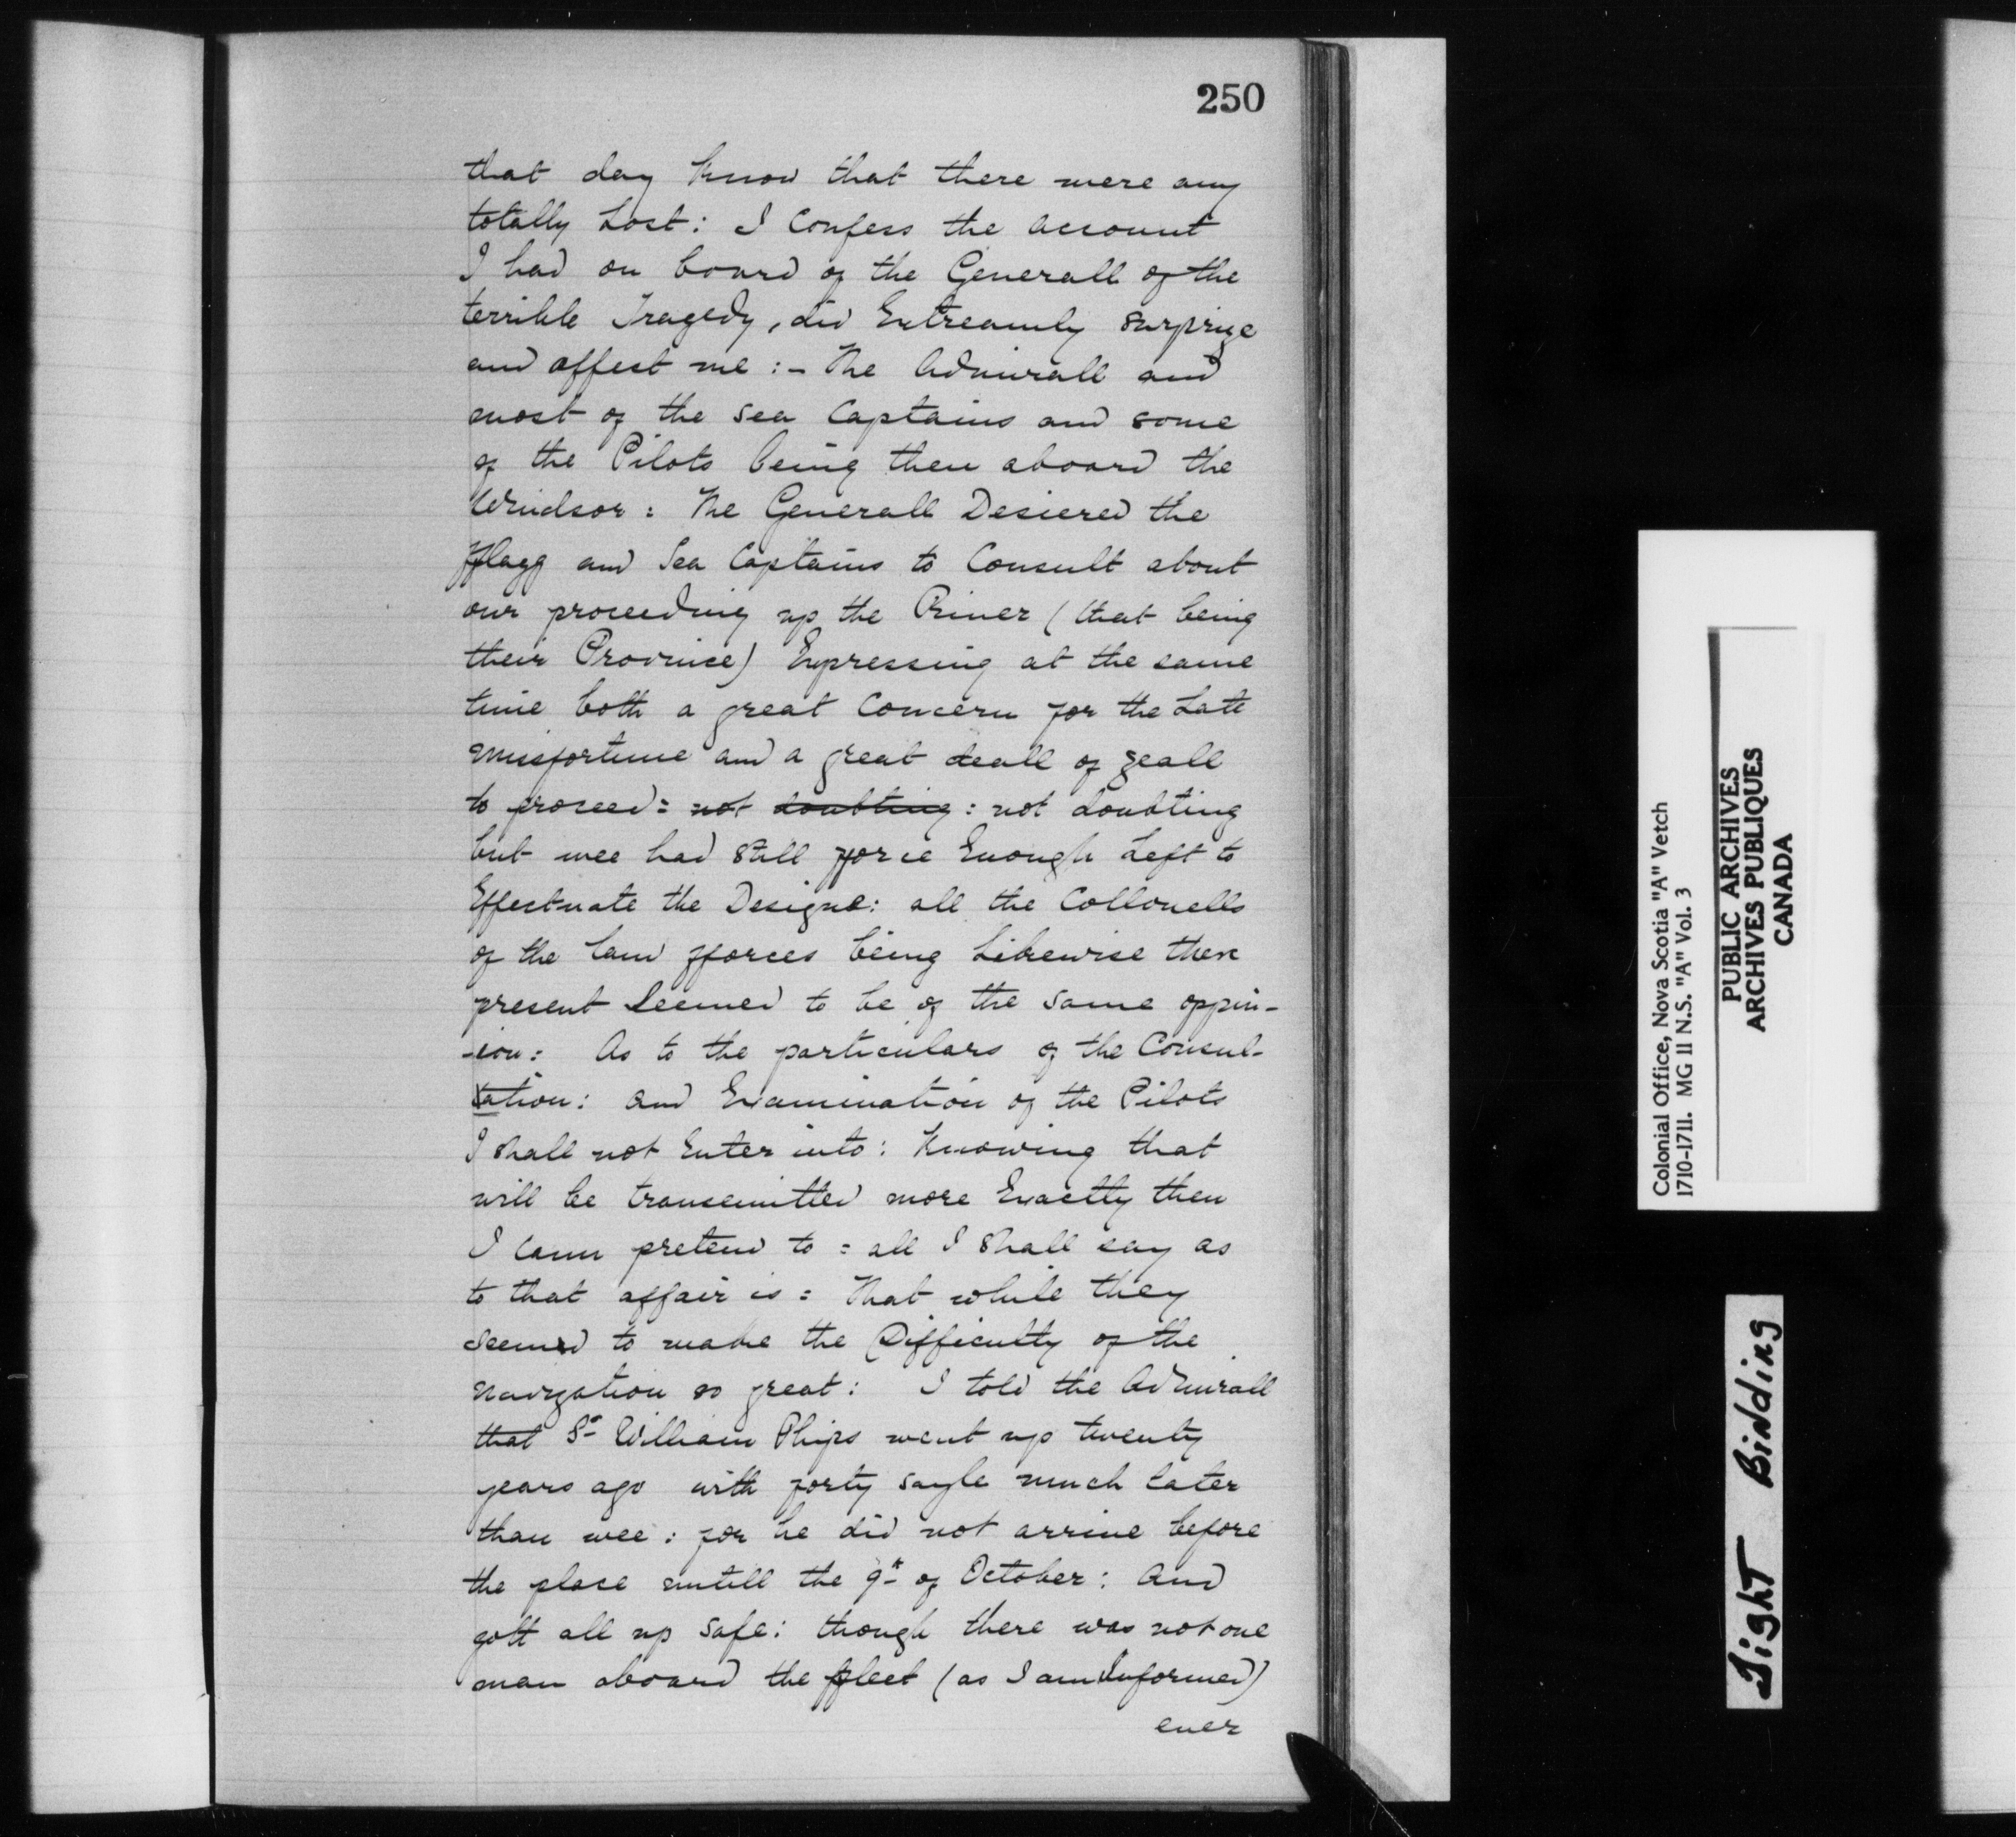 250
that day know that there were any
totally Lost: I Confess the account
I had on board of the Generall of the
terrible Tragedy, did Extreamly surprize
and affect me :- The Admirall and
most of the sea Captains and some
of the Pilots being then aboard the
Windsor: The Generall Desiered the
fflagg and Sea Captains to Consult about
our proceeding up the River (that being
their Province) Expressing at the same
time both a great Concern for the Late
misfortune and a great deall of zeall
to proceed: not doubting: not doubting
but wee had still fforce Enough Left to
Effectuate the Designe: all the Collonells
of the land fforces being Likewise there
present Seemed to be of the same oppin-
-ion: As to the particulars of the Consul-
tation: and Examination of the Pilots
I shall not Enter into: Knowing that
will be transemitted more Exactly then
I cann pretend to: all I shall say as
to that affair is: That while they
seemed to make the Difficulty of the
navigation so great: I told the Admirall
that Sr William Phips went up twenty
years ago with forty sayle much later
than wee: for he did not arrive before
the place untill the 9th of October: And
gott all up safe: though there was not one
man aboard the ffleet (as I am Informed)
ever
Colonial Office, Nova Scotia "A" Vetch
1710-1711. MG 11 N.S. "A" Vol. 3
PUBLIC ARCHIVES
ARCHIVES PUBLIQUES
CANADA
Tight Binding